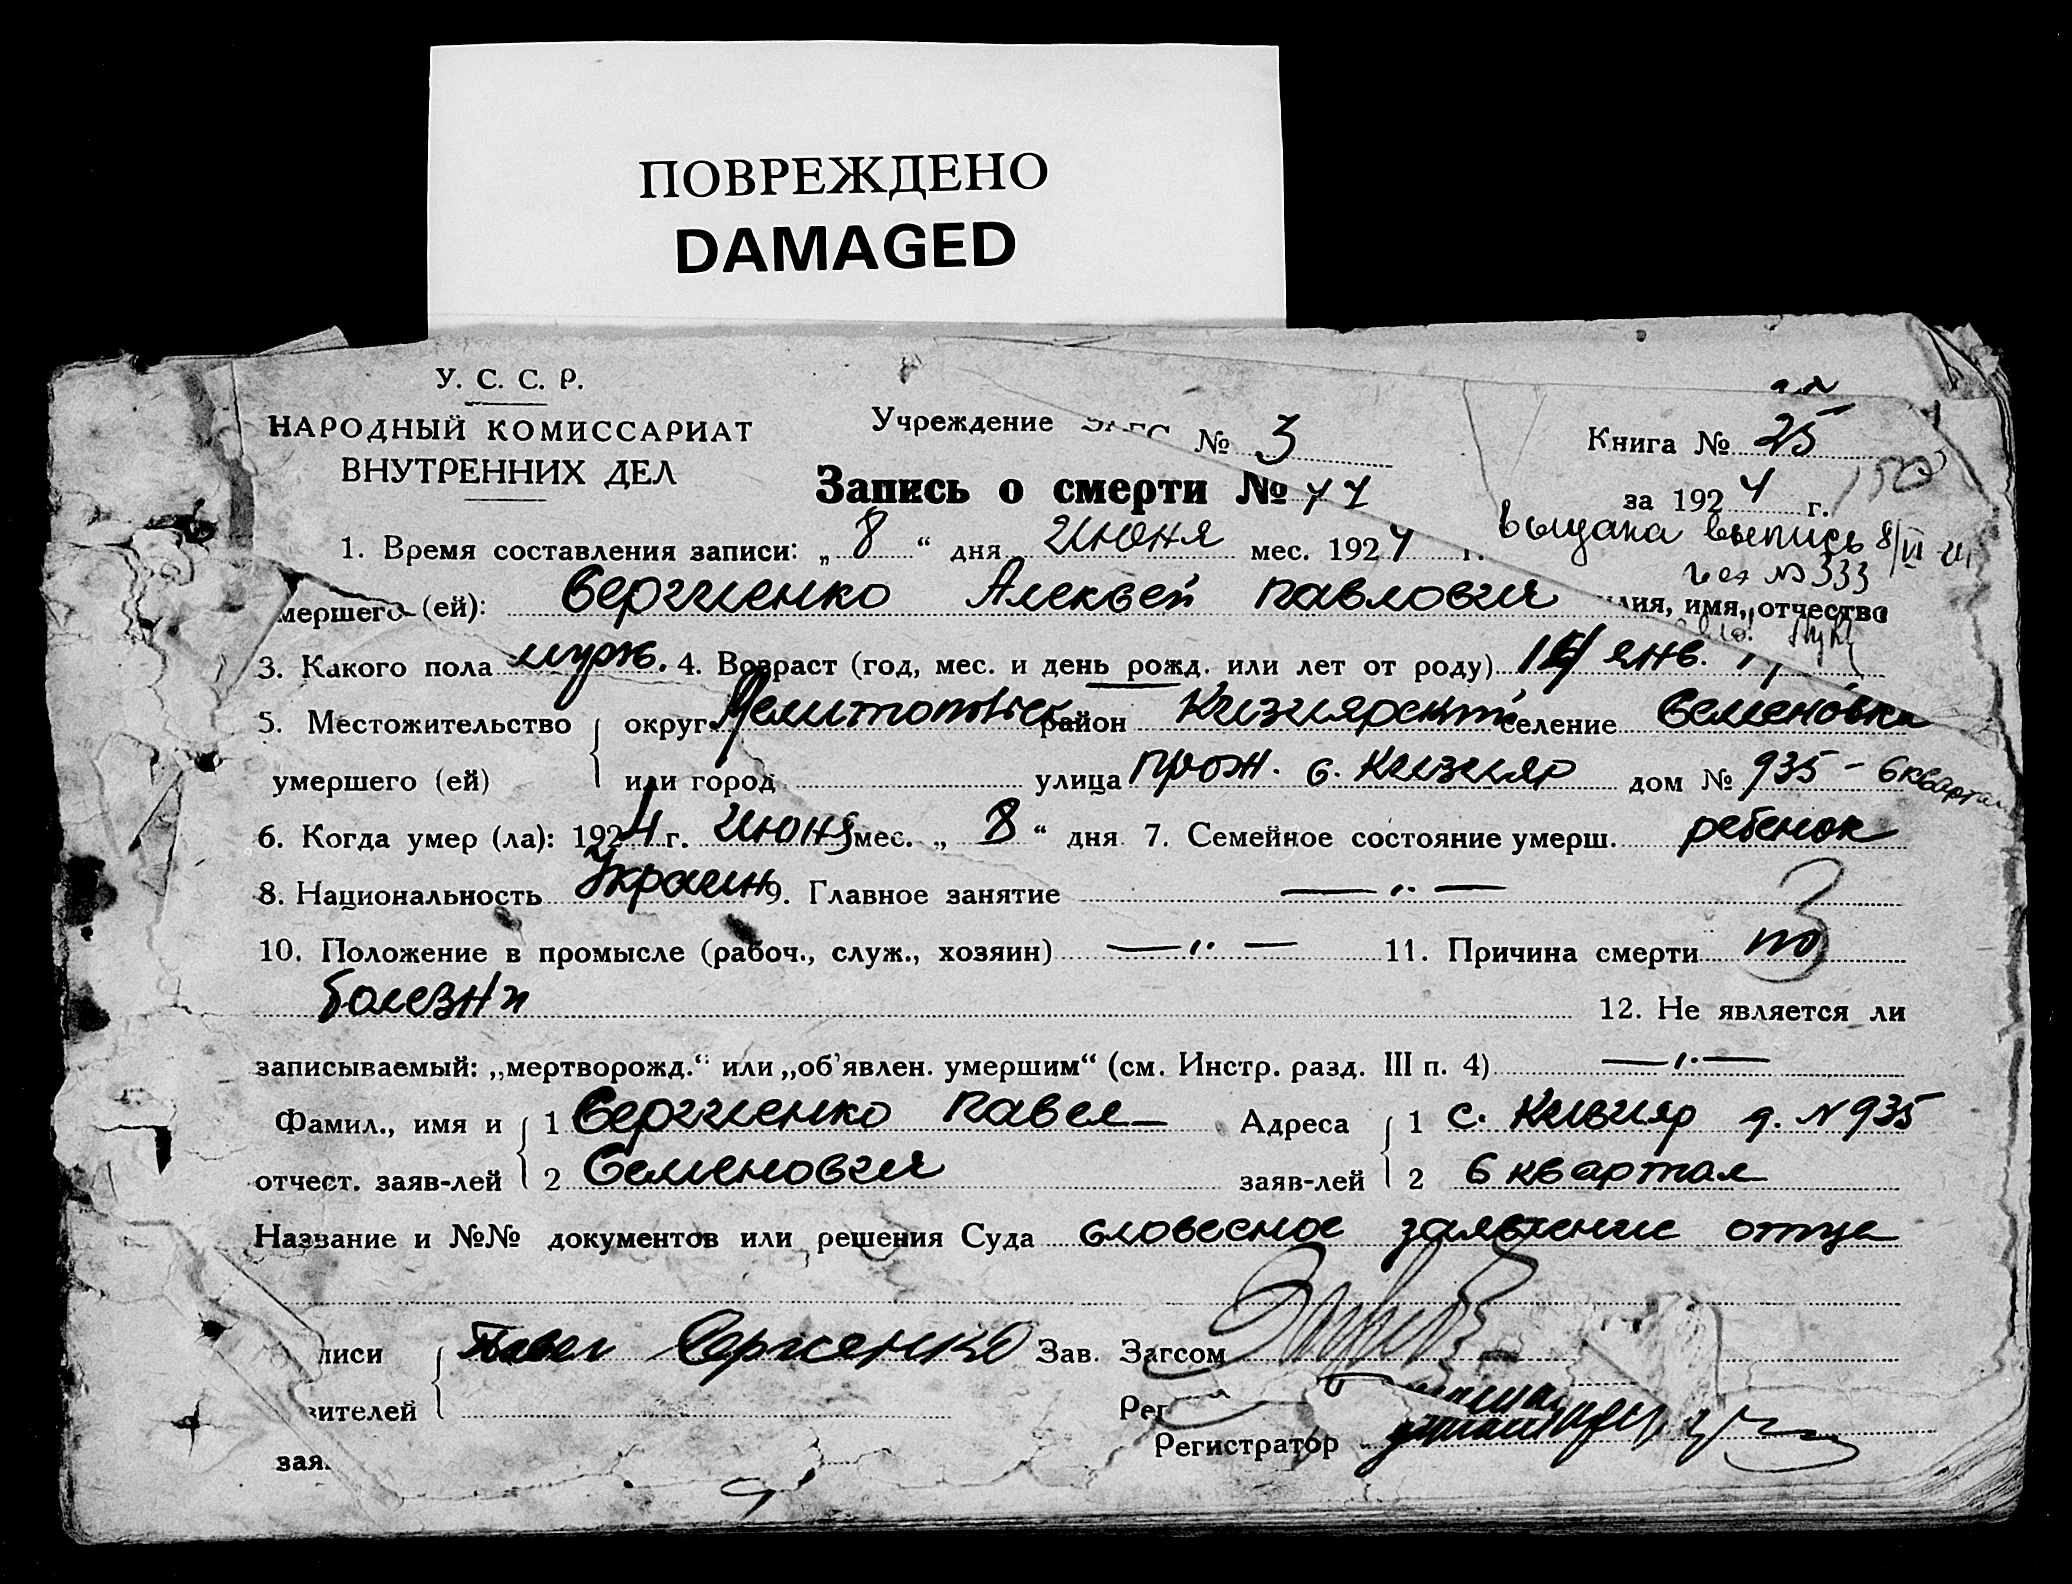 ПОВРЕЖДЕНО
DAMAGED
У. С. С. Р.
НАРОДНЫЙ КОМИССАРИАТ
ВНУТРЕННИХ ДЕЛ
Учреждение ЗАГС № 3
Книга № 25
за 1924 г.
Запись о смерти №
выдана выпись 8/VI 24
№ 333
1. Время составления записи: „ 8 “ дня Июня мес. 1924 г.
мершего (ей): Сергиенко Алексей Павлович лия, имя, отчество
3. Какого пола муж. 4. Возраст (год, мес. и день рожд. или лет от роду) янв.
5. Местожительство округ Мелитопольск район Кизиярский селение Семеновка
умершего (ей) или город улица прож. с. Кизияр дом № 935 - 6 квартал
6. Когда умер (ла): 1924 г. Июня мес. „ 8 “ дня 7. Семейное состояние умерш. ребенок
8. Национальность Украин 9. Главное занятие — „ —
10. Положение в промысле (рабоч., служ., хозяин) — „ — 11. Причина смерти по
болезни 12. Не является ли
записываемый: „мертворожд.“ или „об'явлен. умершим“ (см. Инстр. разд. III п. 4) — „ —
Фамил., имя и 1 Сергиенко Павел Адреса 1 с. Кизияр д. № 935
отчест. заяв-лей 2 Семенович заяв-лей 2 6 квартал
Название и №№ документов или решения Суда словесное заявление отца
писи Павел Сергиенко Зав. Загсом
вителей Рег
Регистратор
зая